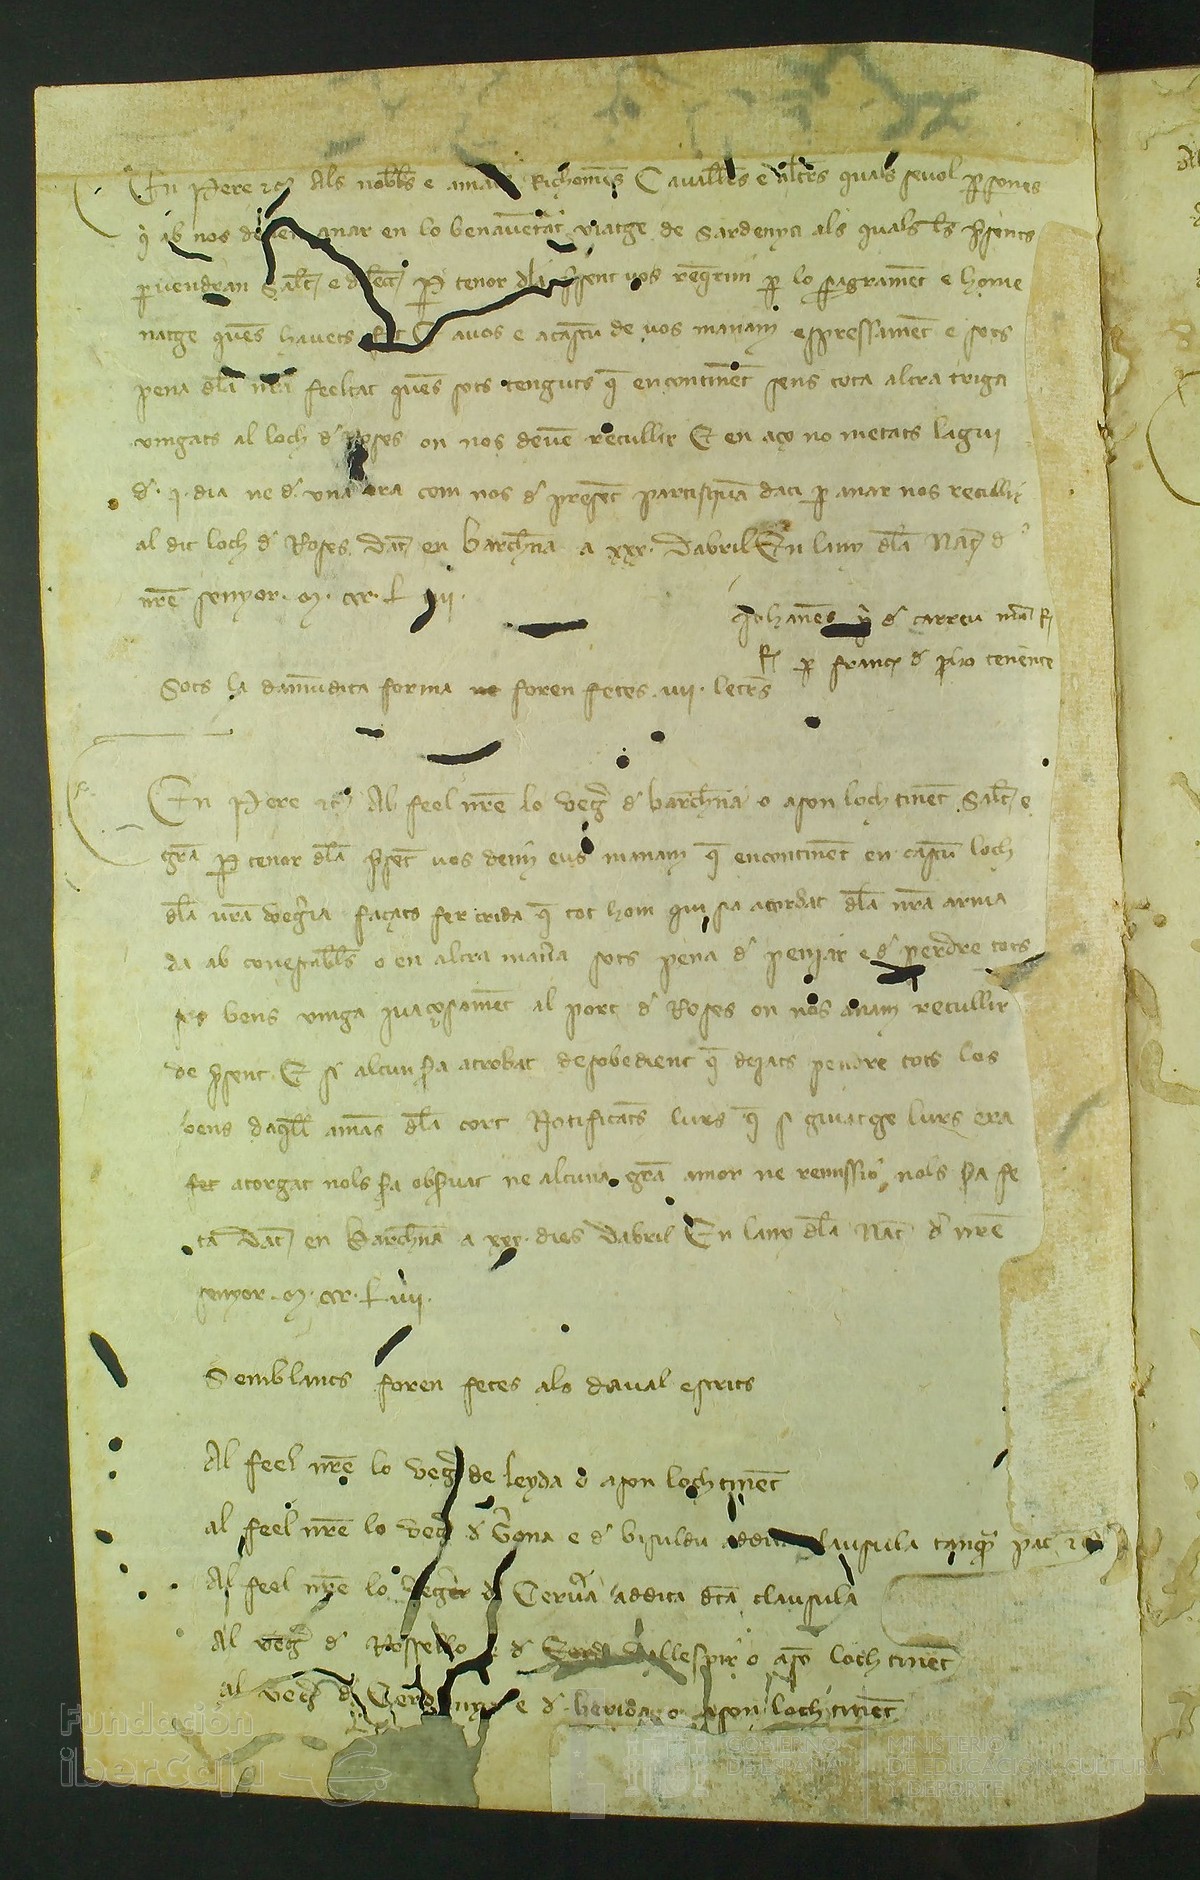 En Pere etc Als nobles e amats Richomens Cavallers e altres quals sevol persones
qi ab nos deven anar en lo benaventat viatge de Sardenya als quals les presents
pervendran Salut e dileccio Per tenor dela present vos requerim per lo sagrament e home
natge quens havets fet E avos e acascu de vos manam espressament e sots
pena dela nostra feeltat quens sots tenguts que encontinent sens tota altra triga
vingats al loch de Roses on nos devem recullir E en aço no metats lagui
de .I. dia ne de una ora com nos de present partiscam daci per anar nos recullir
al dit loch de Roses Dat en Barchna a xxx. dabril En lany dela Nat de
nre senyor .M. CCC. L iiii.
Johannes de Carreu
Rx per Franc de tenente
Sots la damundita forma ne foren fetes .viii. letres
En Pere etc Al feel nre lo veguer de Barchna o ason loch tinent Salut e
gra Per tenor dela present vos dehim eus manam que encontinent en cascun loch
dela vra vegueria façats fer crida que tot hom qui sia acordat dela nra arma
da ab conestables o en altra manera sots pena de penjar e de perdre tots
sos bens vinga ivaçosament al port de Roses on nos anam recullir
de present E si alcun sera atrobat desobedient que dejats pendre tots los
bens daquell amans dela cort Notificants lurs que si guiatge lurs era
fet atorgat nols sera observat ne alcuna gra amor ne remissio nols sera fe
ta Dat en Barchna a xxx. dies dabril En lany dela Nat de nre
senyor .M. CCC. L. iiii.
Semblants foren fetes als daval escrits
Al feel nre lo veguer de Leyda o ason loch tinent
Al feel nre lo veguer de Gerona e de Bisuldu addita clausula tanquam pat etc
Al feel nre lo veguer de Cervera addita dca clausula
Al veguer de Rossello e de Vallespir o aso loch tinent
Al veguer de Cerdanya e de Berida o ason loch tinent
Fundación
iberCaja
GOBIERNO
DE ESPAÑA
MINISTERIO
DE EDUCACIÓN, CULTURA
Y DEPORTE